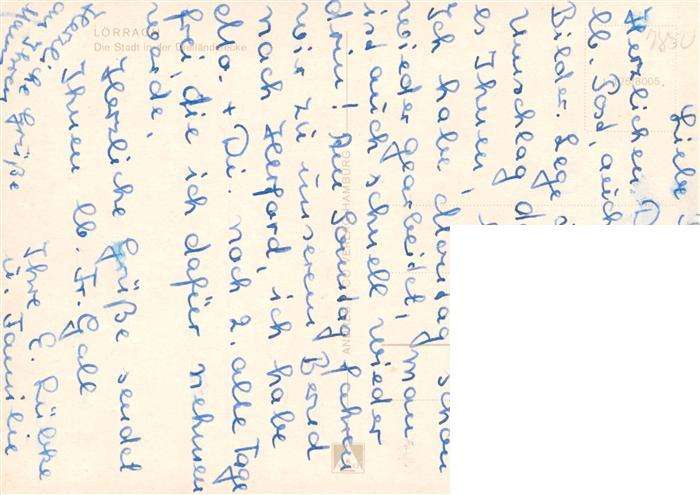 LÖRRACH
Die Stadt in der Dreiländerecke
Liebe
Herzlichen
lb. Post, auch
Bilder. Lege
Umschlag
es Ihnen
Ich habe Montag schon
wieder gearbeitet, man
ist auch schnell wieder
drin! Am Sonntag fahren
wir zu unserem Bernd
nach Herford, ich habe
Mo. + Di. noch 2. alte Tage
frei, die ich dafür nehmen
werde,
Herzliche Grüße sendet
Ihnen lb. Fr. Gall
Ihre E. Lübke
u. Familie
Herzl.
Grüße
HAMBURG